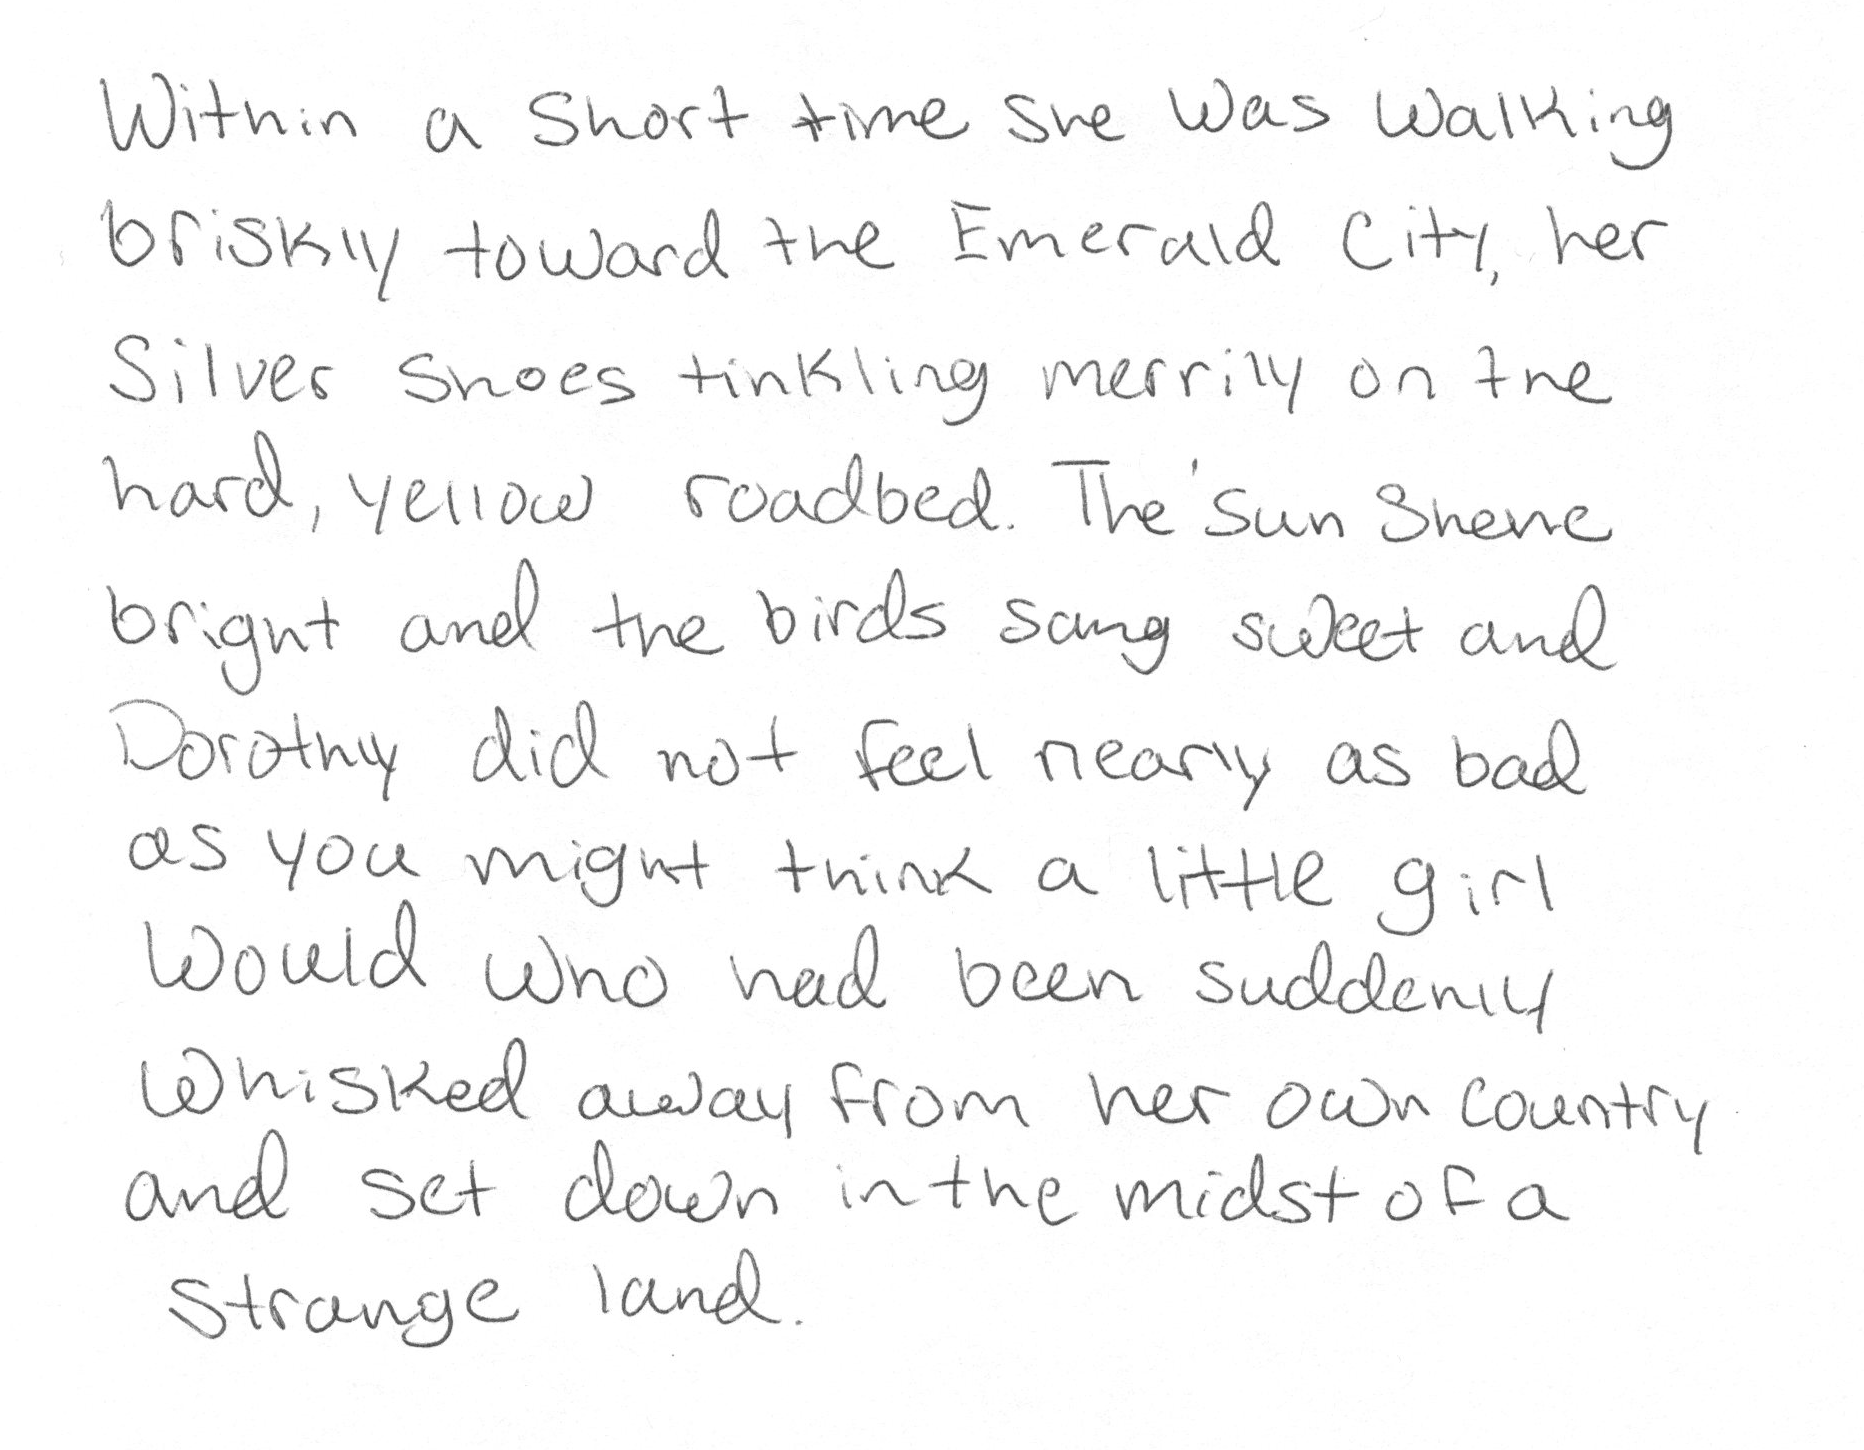 Within a Short time She Was Walking
briskly toward the Emerald City, her
Silver Shoes tinkling merrily on the
hard, yellow roadbed. The Sun Shone
bright and the birds sang sweet and
Dorothy did not feel nearly as bad
as you might think a little girl
Would who had been suddenly
whisked away from her own country
and set down in the midst of a
strange land.